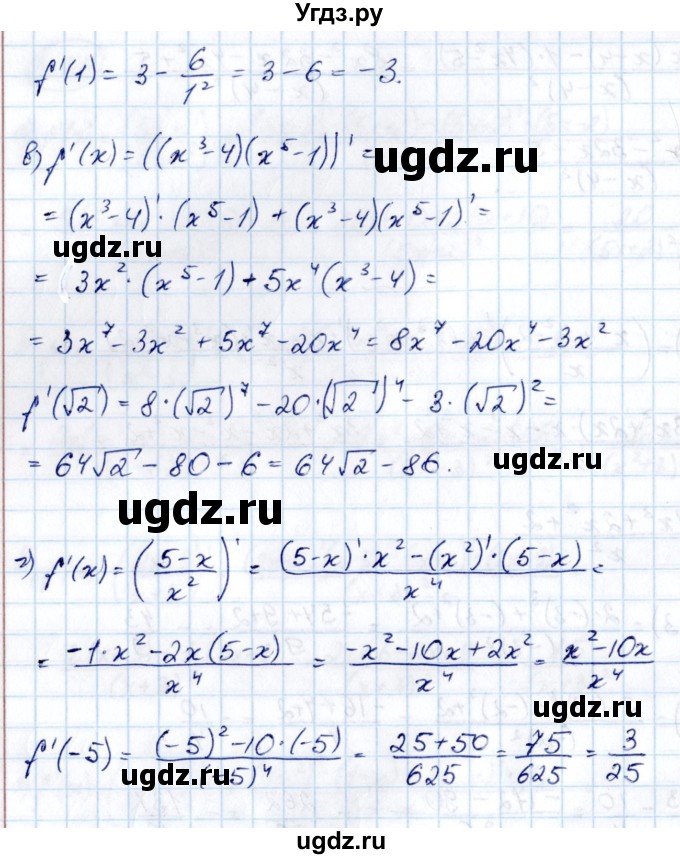 Угдз.ру
f'(1) = 3 - 6/1² = 3 - 6 = -3.
в) f'(x) = ((x³-4)(x⁵-1))' =
ugdz.ru
= (x³-4)'·(x⁵-1) + (x³-4)(x⁵-1)' =
ugdz.ru
= 3x²·(x⁵-1) + 5x⁴(x³-4) =
= 3x⁷ - 3x² + 5x⁷ - 20x⁴ = 8x⁷ - 20x⁴ - 3x²
f'(√2) = 8·(√2)⁷ - 20·(√2)⁴ - 3·(√2)² =
= 64√2 - 80 - 6 = 64√2 - 86.
ugdz.ru
ugdz.ru
г) f'(x) = ((5-x)/x²)' = ((5-x)'·x² - (x²)'·(5-x))/x⁴ =
= (-1·x² - 2x(5-x))/x⁴ = (-x² - 10x + 2x²)/x⁴ = (x² - 10x)/x⁴
ugdz.ru
f'(-5) = ((-5)² - 10·(-5))/(-5)⁴ = (25+50)/625 = 75/625 = 3/25
ugdz.ru
ugdz.ru